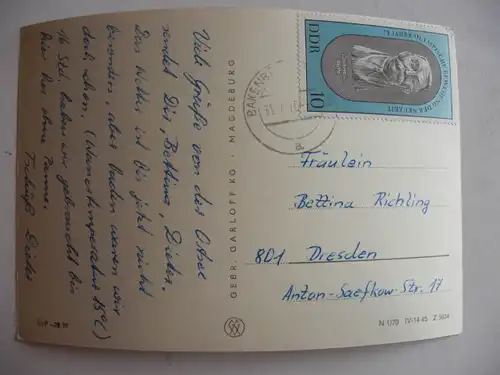 Viele Grüße von der Ostsee
sendet Dir, Bettina, Dieter.
Das Wetter ist bis jetzt nicht
besonders, aber baden waren wir
doch schon. (Wassertemperatur 15°C)
16 Std. haben wir gebraucht bis
hier her ohne Panne.
Tschüß Dieter
GEBR. GARLOFF KG · MAGDEBURG
DDR
10
Fräulein
Bettina Richling
801 Dresden
Anton-Saefkow-Str. 17
N 1/70 IV-14-45 Z 5034